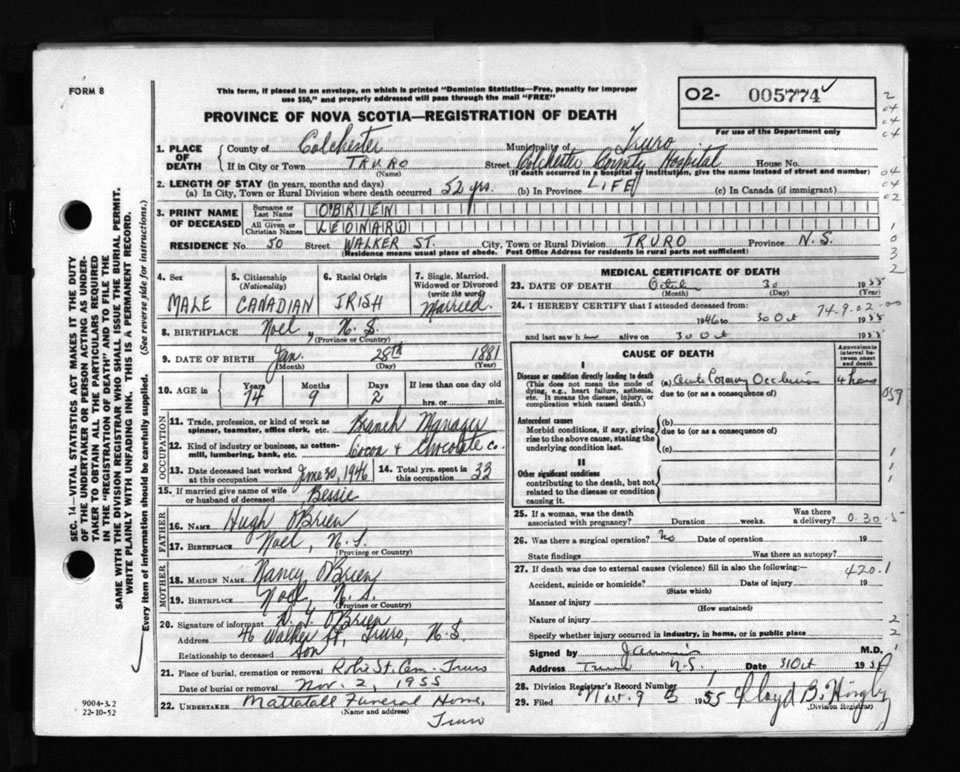 FORM 8
This form, if placed in an envelope, on which is printed "Dominion Statistics—Free, penalty for improper
use $50," and properly addressed will pass through the mail "FREE"
PROVINCE OF NOVA SCOTIA—REGISTRATION OF DEATH
O2- 005774
For use of the Department only
1. PLACE OF DEATH
County of Colchester Municipality of Truro
If in City or Town TRURO Street Colchester County Hospital House No.
(Name) (If death occurred in a hospital or institution, give the name instead of street and number)
2. LENGTH OF STAY (in years, months and days)
(a) In City, Town or Rural Division where death occurred 52 yrs. (b) In Province LIFE (c) In Canada (if immigrant)
3. PRINT NAME OF DECEASED
Surname or Last Name O'BRIEN
All Given or Christian Names LEONARD
RESIDENCE No. 50 Street WALKER ST. City, Town or Rural Division TRURO Province N.S.
(Residence means usual place of abode. Post Office Address for residents in rural parts not sufficient)
4. Sex MALE
5. Citizenship (Nationality) CANADIAN
6. Racial Origin IRISH
7. Single, Married, Widowed or Divorced (write the word) Married.
8. BIRTHPLACE Noel, N.S.
(Province or Country)
9. DATE OF BIRTH Jan. 28th 1881
(Month) (Day) (Year)
10. AGE in Years 74 Months 9 Days 2 If less than one day old hrs. or min.
OCCUPATION
11. Trade, profession, or kind of work as spinner, teamster, office clerk, etc. Branch Manager
12. Kind of industry or business, as cotton-mill, lumbering, bank, etc. Cocoa & Chocolate Co.
13. Date deceased last worked at this occupation June 30, 1946 14. Total yrs. spent in this occupation 33
15. If married give name of wife or husband of deceased Bessie
FATHER
16. NAME Hugh O'Brien
17. BIRTHPLACE Noel, N.S.
(Province or Country)
MOTHER
18. MAIDEN NAME Nancy O'Brien
19. BIRTHPLACE Noel, N.S.
(Province or Country)
20. Signature of informant O'Brien
Address 46 Walker St, Truro, N.S.
Relationship to deceased Son
21. Place of burial, cremation or removal Robie St. Cem. Truro
Date of burial or removal Nov. 2, 1955
22. UNDERTAKER Mattatall Funeral Home,
(Name and address)
Truro
MEDICAL CERTIFICATE OF DEATH
23. DATE OF DEATH 30 1955
(Month) (Day) (Year)
24. I HEREBY CERTIFY that I attended deceased from: 74-9-02-00
1946 to 30 Oct 1955
and last saw h alive on 30 Oct 1955
CAUSE OF DEATH
Approximate interval between onset and death
I
Disease or condition directly leading to death
(This does not mean the mode of dying, e.g., heart failure, asthenia, etc. It means the disease, injury, or complication which caused death.)
(a) Acute Coronary Occlusion 4 hours
due to (or as a consequence of)
Antecedent causes
Morbid conditions, if any, giving rise to the above cause, stating the underlying condition last.
(b)
due to (or as a consequence of)
(c)
II
Other significant conditions
contributing to the death, but not related to the disease or condition causing it.
25. If a woman, was the death associated with pregnancy? Duration weeks. Was there a delivery? 0-30-5
26. Was there a surgical operation? No Date of operation 19
State findings Was there an autopsy?
27. If death was due to external causes (violence) fill in also the following:— 420.1
Accident, suicide or homicide? Date of injury 19
(State which)
Manner of injury
(How sustained)
Nature of injury
Specify whether injury occurred in industry, in home, or in public place
Signed by M.D.
Address Truro N.S. Date 31 Oct 195
28. Division Registrar's Record Number
29. Filed Nov. 9 1955 Lloyd B.
(Division Registrar)
SEC. 14—VITAL STATISTICS ACT MAKES IT THE DUTY
OF THE UNDERTAKER OR PERSON ACTING AS UNDER-
TAKER TO OBTAIN ALL THE PARTICULARS REQUIRED
IN THE "REGISTRATION OF DEATH" AND TO FILE THE
SAME WITH THE DIVISION REGISTRAR WHO SHALL ISSUE THE BURIAL PERMIT.
WRITE PLAINLY WITH UNFADING INK. THIS IS A PERMANENT RECORD.
Every item of information should be carefully supplied. (See reverse side for instructions.)
9004-3.2
22-10-52
2
04
04
04
04
02
1
0
3
2
059
1
1
1
2
2